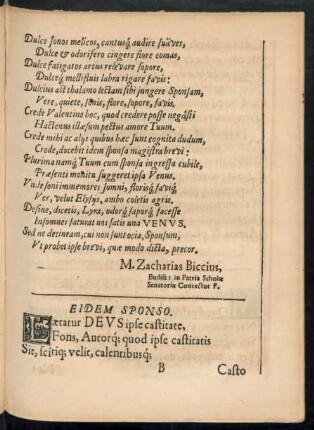 Dulce sonos melicos, cantusq́ue audire suäves,
Dulce & odorifero cingere flore comas,
Dulce fatigatos artus relevare sopore,
Dulceq́; mellifluis labra rigare favis:
Dulcius ast thalamo lectam sibi jungere Sponsam,
Vere, quiete, sonis, flore, sopore, favis.
Crede Valentine hoc, quod credere posse negâsti
Hactenus illæsum pectus amore Tuum.
Crede mihi ac alys quibus hæc sunt cognita dudum,
Crede, docebit idem sponsa magistra brevi:
Plurima namq́; Tuum cum sponsa ingressa cubile,
Præsenti monitu suggeret ipsa Venus.
Unde soni immemores somni, florisq́; faviq́;
Ver, velut Elysys, ambo coletis agris.
Desine, dicetis, Lyra, odorq́; saporq́; facesse
Insomnes saturat nos satis una VENUS.
Sed ne detineam, cui non sunt ocia, Sponsum,
Ut probet ipse brevi, quæ modo dicta, precor.
M. Zacharias Biccius,
in Patria Scholæ
Senatoriæ Conrector P.
EIDEM SPONSO.
Lætatur DEUS ipse castitate,
Fons, Autorq́; quod ipse castitatis
Sit, scitiq́; velit, calentibusq́;
B
Casto